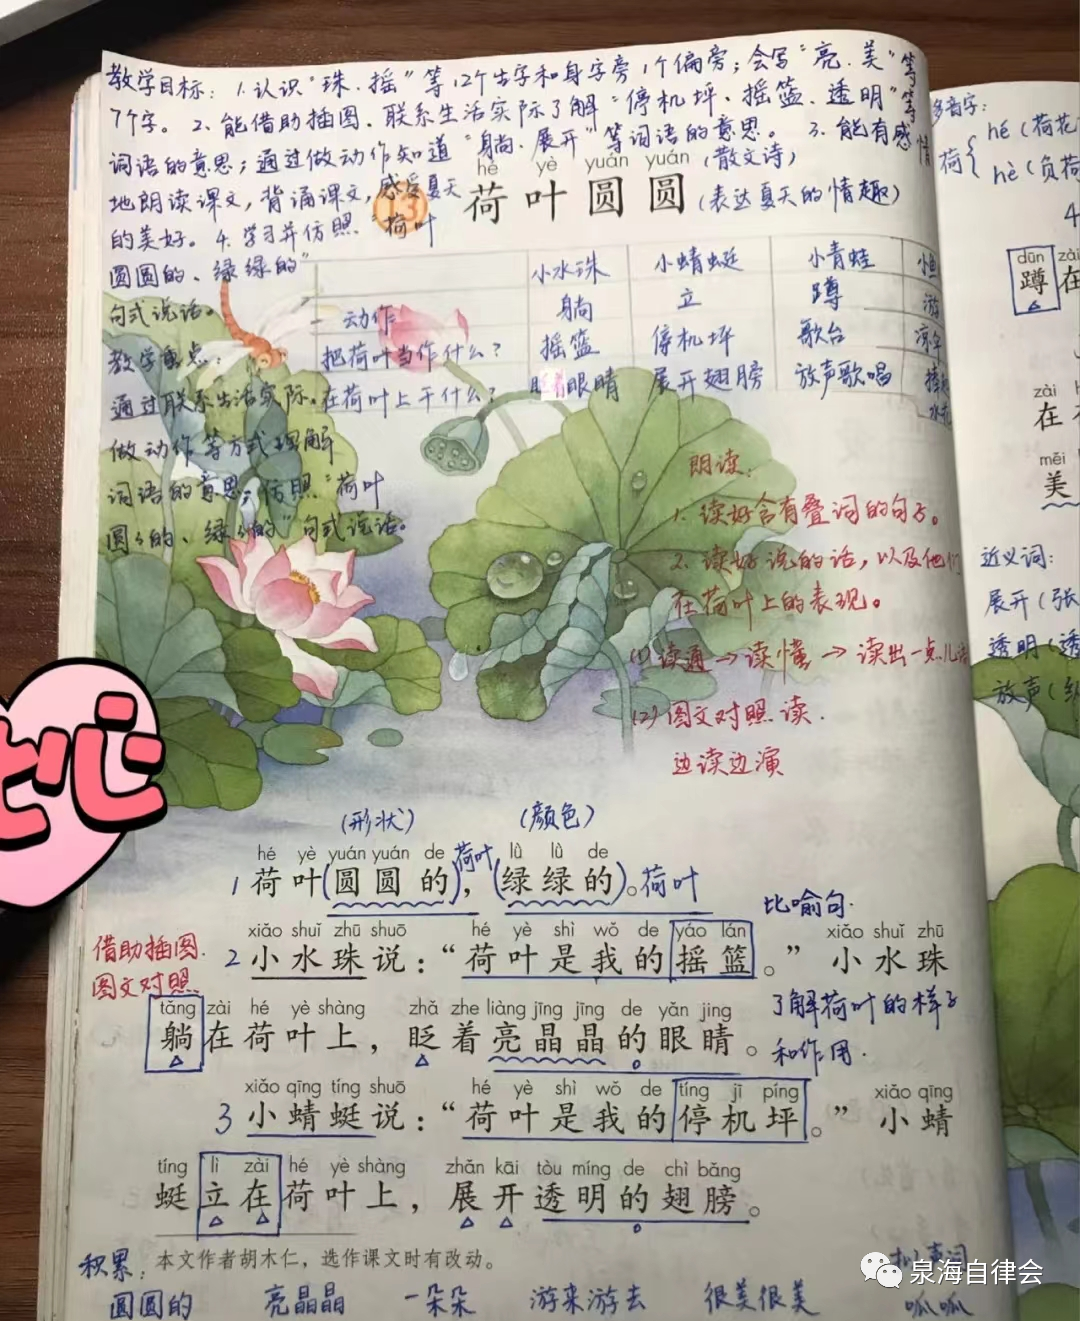 教学目标：1.认识“珠、摇”等12个生字和身字旁1个偏旁；会写“亮、美”等
7个字。2、能借助插图、联系生活实际了解“停机坪、摇篮、透明”等
词语的意思；通过做动作知道“躺、展开”等词语的意思。3、能有感情
地朗读课文，背诵课文，感受夏天
的美好。4、学习并仿照“荷叶
圆圆的、绿绿的”
句式说话。
教学重点：
通过联系生活实际、
做动作等方式理解
词语的意思；仿照“荷叶
圆圆的、绿绿的”句式说话。
hé yè yuán yuán
13 荷叶圆圆
(散文诗)
(表达夏天的情趣)
小水珠 小蜻蜓 小青蛙 小鱼
动作 躺 立 蹲 游
把荷叶当作什么？ 摇篮 停机坪 歌台 凉伞
在荷叶上干什么？ 眼睛 展开翅膀 放声歌唱
朗读：
1、读好含有叠词的句子。
2、读好说的话，以及他们
在荷叶上的表现。
(1)读通→读懂→读出一点儿
(2)图文对照读.
边读边演
(形状) (颜色)
hé yè yuán yuán de lǜ lǜ de
1 荷叶(圆圆的)，荷叶(绿绿的)。荷叶
比喻句.
借助插图.
图文对照.
xiǎo shuǐ zhū shuō hé yè shì wǒ de yáo lán xiǎo shuǐ zhū
2 小水珠说：“荷叶是我的摇篮。”小水珠
tǎng zài hé yè shàng zhǎ zhe liàng jīng jīng de yǎn jing
躺在荷叶上，眨着亮晶晶的眼睛。
了解荷叶的样子
和作用.
xiǎo qīng tíng shuō hé yè shì wǒ de tíng jī píng xiǎo qīng
3 小蜻蜓说：“荷叶是我的停机坪。”小蜻
tíng lì zài hé yè shàng zhǎn kāi tòu míng de chì bǎng
蜓立在荷叶上，展开透明的翅膀。
本文作者胡木仁，选作课文时有改动。
积累：
圆圆的 亮晶晶 一朵朵 游来游去 很美很美 呱呱
多音字：
荷{hé(荷花
hè(负荷
dūn zài
蹲在
zài
在
měi
美
近义词：
展开(张
透明(透
放声(
心
泉海自律会